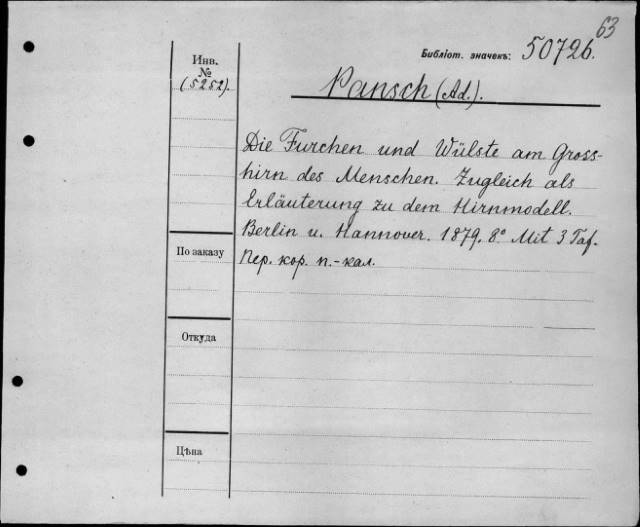 63
Библіот. значекъ: 50726.
Инв.
№
(5252).
Pansch (Ad.).
Die Furchen und Wülste am Gross-
hirn des Menschen. Zugleich als
Erläuterung zu dem Hirnmodell.
Berlin u. Hannover. 1879. 8° Mit 3 Taf.
Пер. кор. п.-кал.
По заказу
Откуда
Цѣна